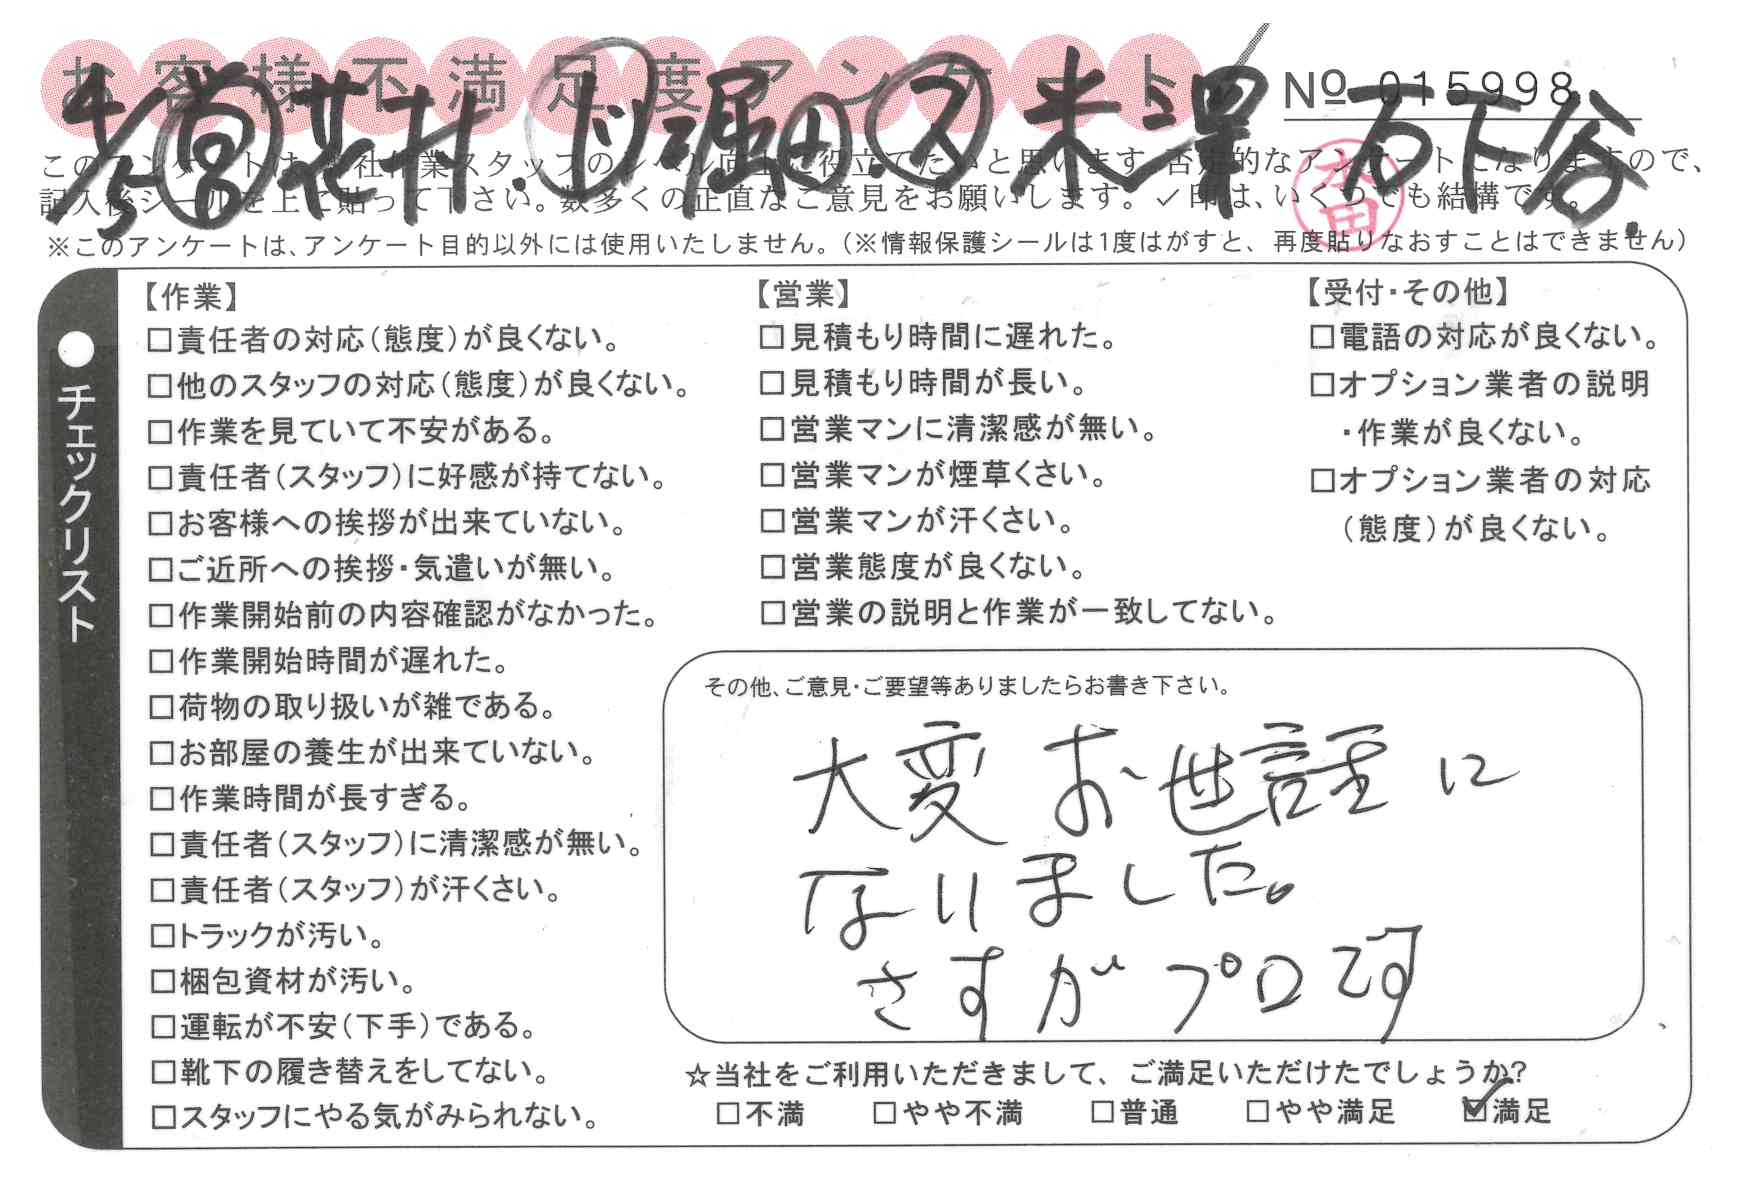 お客様不満足度アンケート
№ 015998
4/5 営 花村. ド 堀田. ス 米澤 百下谷.
このアンケートは、当社作業スタッフのレベル向上に役立てたいと思います。否定的なアンケートになりますので、
記入後シールを上に貼って下さい。数多くの正直なご意見をお願いします。✓印は、いくつでも結構です。
※このアンケートは、アンケート目的以外には使用いたしません。（※情報保護シールは1度はがすと、再度貼りなおすことはできません）
●チェックリスト
【作業】
□責任者の対応（態度）が良くない。
□他のスタッフの対応（態度）が良くない。
□作業を見ていて不安がある。
□責任者（スタッフ）に好感が持てない。
□お客様への挨拶が出来ていない。
□ご近所への挨拶・気遣いが無い。
□作業開始前の内容確認がなかった。
□作業開始時間が遅れた。
□荷物の取り扱いが雑である。
□お部屋の養生が出来ていない。
□作業時間が長すぎる。
□責任者（スタッフ）に清潔感が無い。
□責任者（スタッフ）が汗くさい。
□トラックが汚い。
□梱包資材が汚い。
□運転が不安（下手）である。
□靴下の履き替えをしてない。
□スタッフにやる気がみられない。
【営業】
□見積もり時間に遅れた。
□見積もり時間が長い。
□営業マンに清潔感が無い。
□営業マンが煙草くさい。
□営業マンが汗くさい。
□営業態度が良くない。
□営業の説明と作業が一致してない。
【受付・その他】
□電語の対応が良くない。
□オプション業者の説明
・作業が良くない。
□オプション業者の対応
（態度）が良くない。
その他、ご意見・ご要望等ありましたらお書き下さい。
大変お世話に
なりました。
さすがプロです
☆当社をご利用いただきまして、ご満足いただけたでしょうか?
□不満 □やや不満 □普通 □やや満足 ☑満足